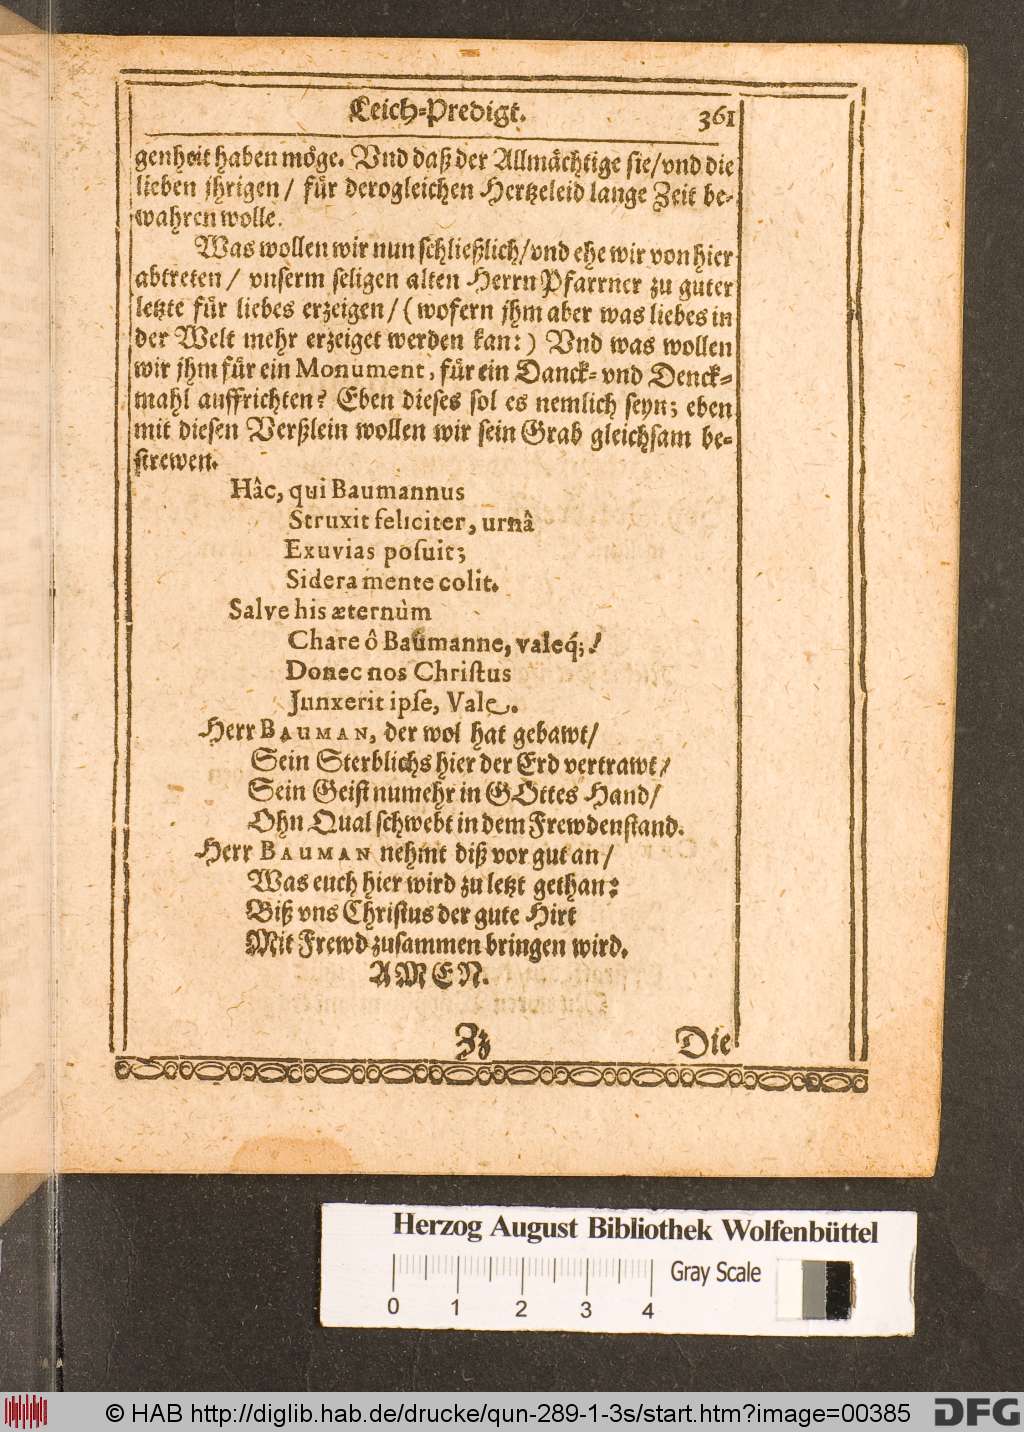 Leich-Predigt. 361
genheit haben möge. Vnd daß der Allmächtige sie/vnd die
lieben jhrigen/ für derogleichen Hertzeleid lange Zeit be-
wahren wolle.
Was wollen wir nun schließlich/vnd ehe wir von hier
abtreten/ vnserm seligen alten Herrn Pfarrner zu guter
letzte für liebes erzeigen/ (wofern jhm aber was liebes in
der Welt mehr erzeiget werden kan:) Vnd was wollen
wir jhm für ein Monument, für ein Danck- vnd Denck-
mahl auffrichten? Eben dieses sol es nemlich seyn; eben
mit diesen Verßlein wollen wir sein Grab gleichsam be-
strewen.
Hâc, qui Baumannus
Struxit feliciter, urnâ
Exuvias posuit;
Sidera mente colit.
Salve his æternùm
Chare ô Baumanne, valeq́;!
Donec nos Christus
Junxerit ipse, Vale.
Herr BAUMAN, der wol hat gebawt/
Sein Sterblichs hier der Erd vertrawt/
Sein Geist numehr in GOttes Hand/
Ohn Qual schwebt in dem Frewdenstand.
Herr BAUMAN nehmt diß vor gut an/
Was euch hier wird zu letzt gethan:
Biß vns Christus der gute Hirt
Mit Frewd zusammen bringen wird.
AMEN.
Zz Die
Herzog August Bibliothek Wolfenbüttel
Gray Scale
0 1 2 3 4
© HAB http://diglib.hab.de/drucke/qun-289-1-3s/start.htm?image=00385 DFG